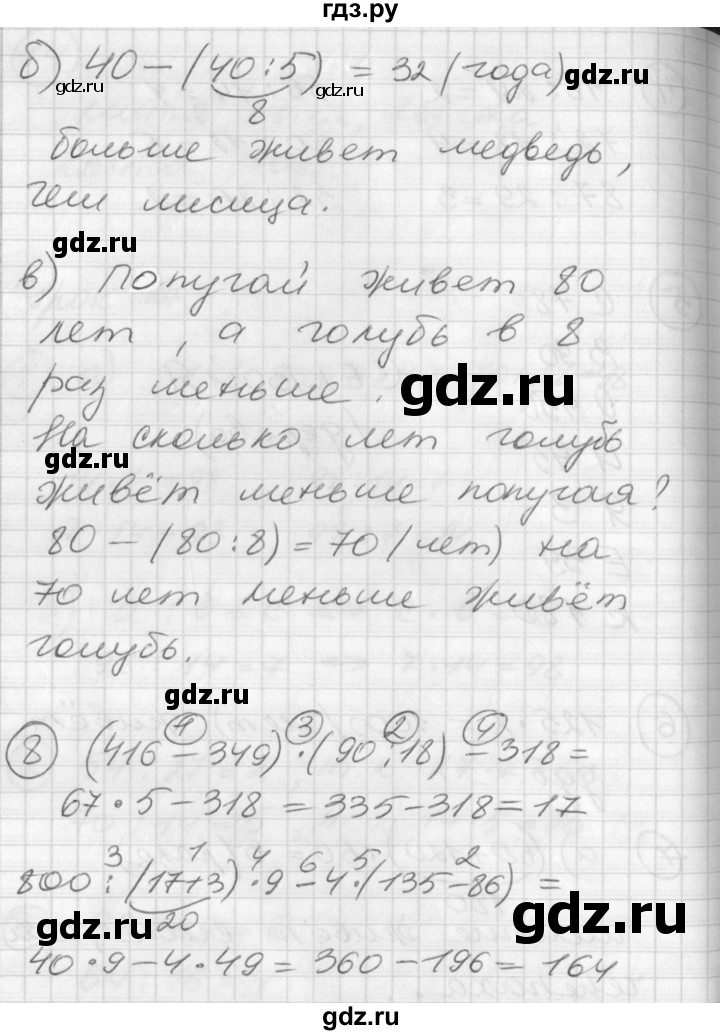 гдз.ру
б) 40 – (40 : 5) = 32 (года)
8
gdz.ru gdz.ru gdz.ru
больше живет медведь,
чем лисица.
gdz.ru
в) Попугай живет 80
лет, а голубь в 8
раз меньше.
gdz.ru
На сколько лет голубь
gdz.ru
живёт меньше попугая?
80 – (80 : 8) = 70 (лет) на
70 лет меньше живёт
голубь.
gdz.ru
1 3 2 4
8 (416 – 349) · (90 : 18) – 318 =
67 · 5 – 318 = 335 – 318 = 17
3 1 4 6 5 2
800 : (17+3) · 9 – 4 · (135 – 86) =
20
gdz.ru gdz.ru
40 · 9 – 4 · 49 = 360 – 196 = 164
gdz.ru